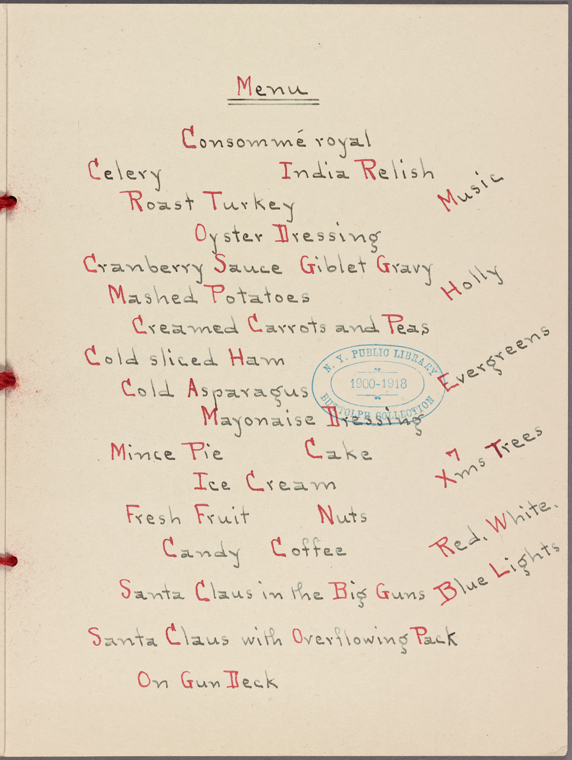 Menu
Consommé royal
Celery India Relish
Roast Turkey
Oyster Dressing
Cranberry Sauce Giblet Gravy
Mashed Potatoes
Creamed Carrots and Peas
Cold sliced Ham
Cold Asparagus
Mayonaise Dressing
Mince Pie Cake
Ice Cream
Fresh Fruit Nuts
Candy Coffee
Santa Claus in the Big Guns
Santa Claus with Overflowing Pack
On Gun Deck
Music
Holly
Evergreens
Xms Trees
Red, White.
Blue Lights
N. Y. PUBLIC LIBRARY
1900-1918
BUTTOLPH COLLECTION